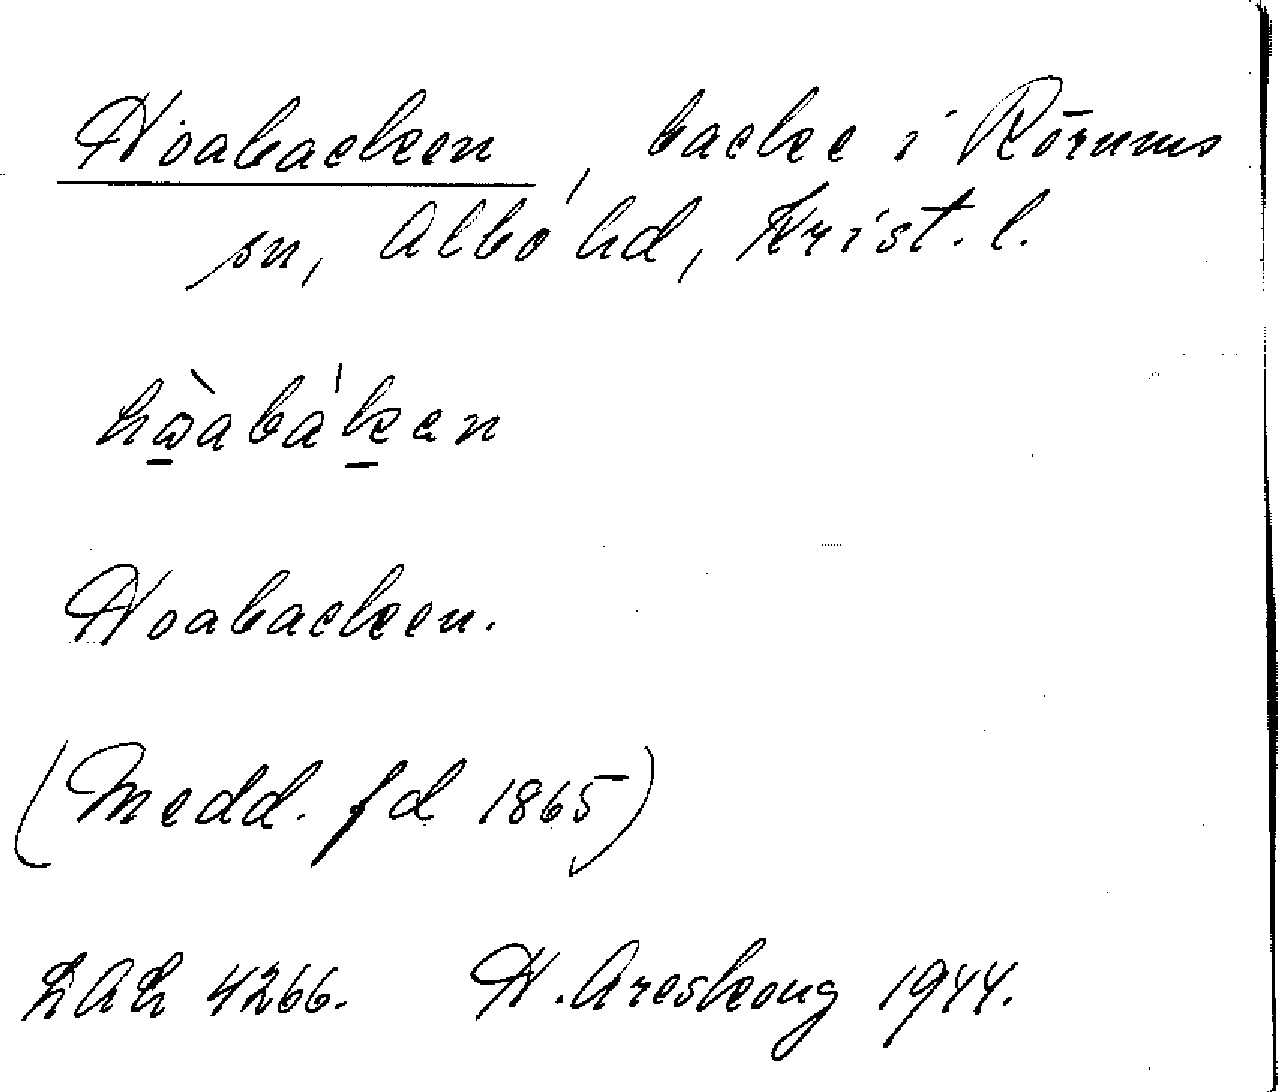 Hoabacken, backe i Rörums
sn, Albo hd, Krist. l.
Hoabacken.
(Medd. fd 1865)
LAL 4266. H. Areskoug 1944.